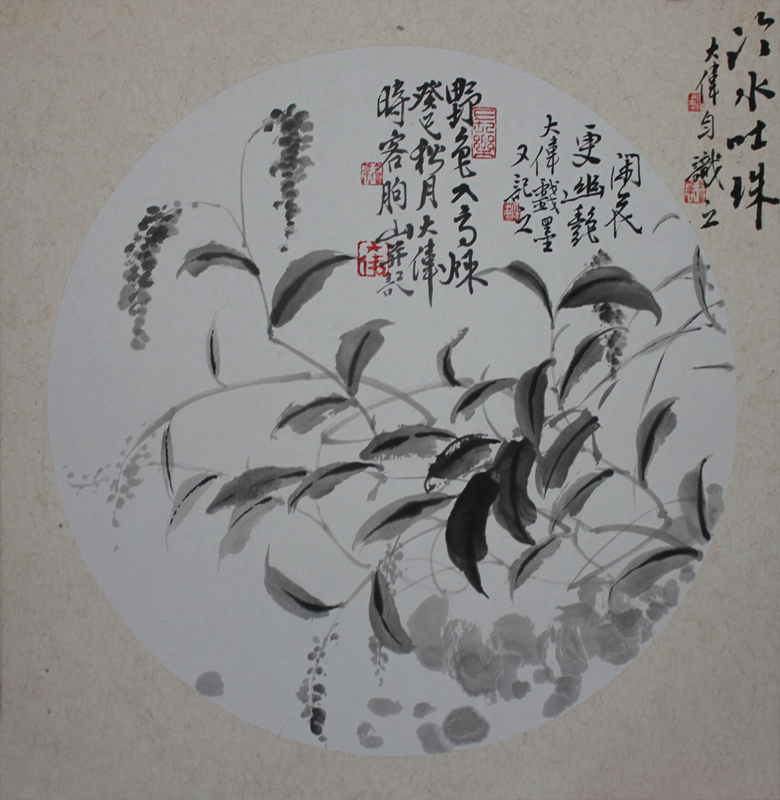 冷水吐珠
大偉自識
闲花
更幽艷
大偉戲墨
又記之
野色入高秋
癸巳秋月大偉
時客朐山并記